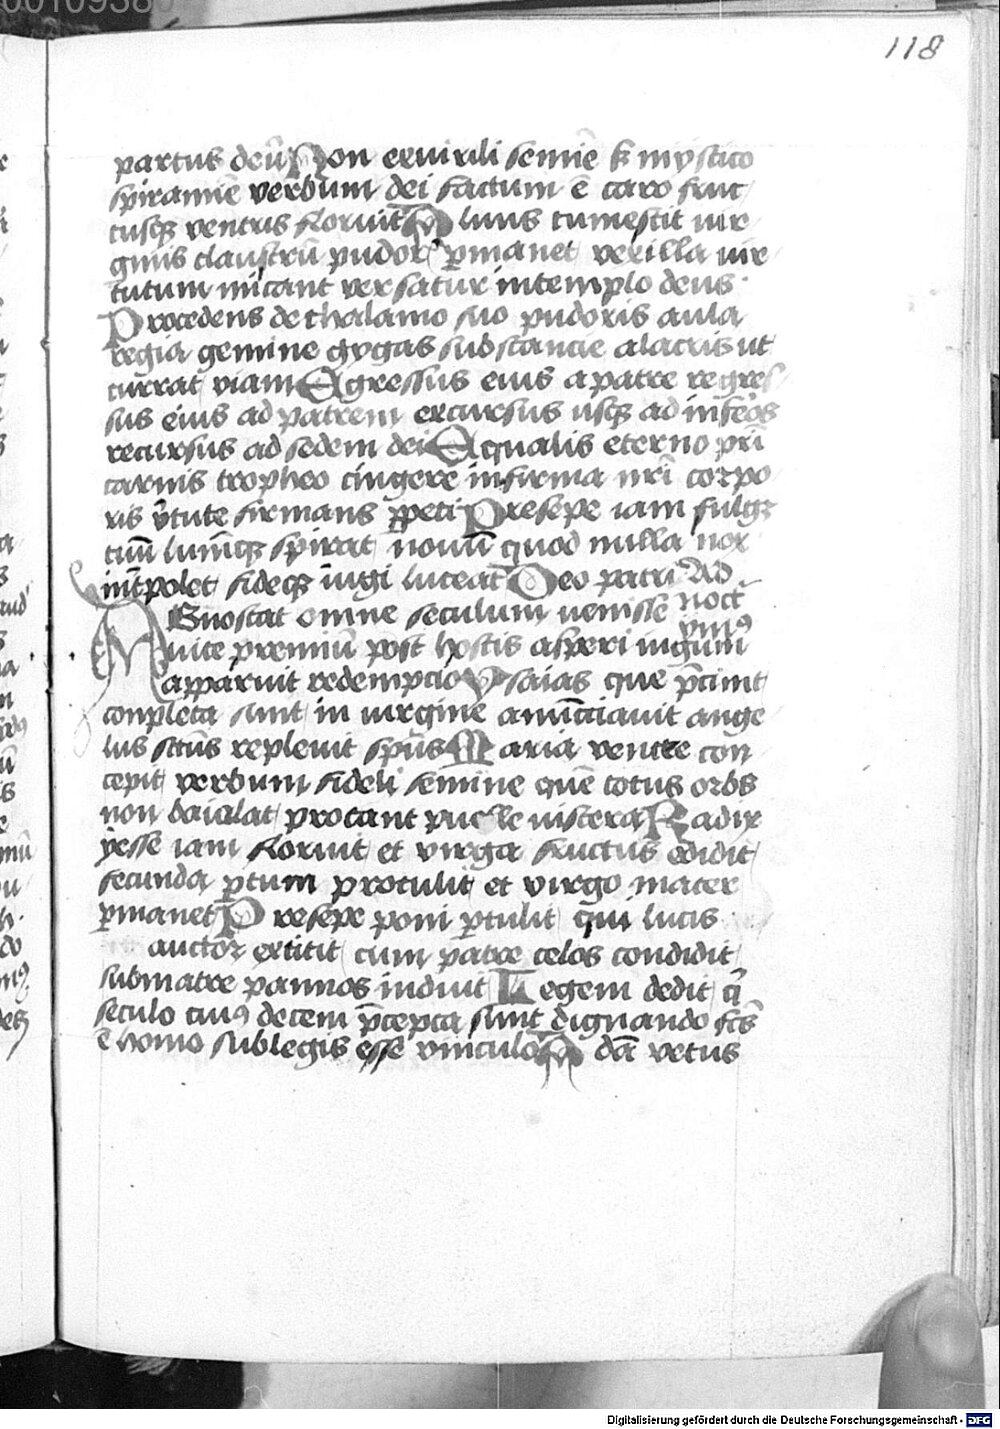 118
partus deū Non ex virili semīe sꝫ mystico
spiramīe verbum dei factum ē caro fruc
tusqꝫ ventris floruit Aluus tumescit uir
ginis claustrū pudoris ꝑmanet vexilla uir
tutum micant versatur in templo deus
Procedens de thalamo suo pudoris aula
regia gemine gygas substancie alacris ut
currat viam Egressus eius a patre regres
sus eius ad patrem excursus usqꝫ ad inferos
recursus ad sedem dei Equalis eterno pri
carnis tropheo cingere infirma nrī corpo
ris v̄tute firmans ꝑpeti Presepe iam fulgꝫ
tuū lumēqꝫ spirat nouū quod nulla nox
int̄polet fideqꝫ iugi luceat Deo patri Ad
noct
ymꝰ
Agnoscat omne seculum uenisse
uite premiū post hostis asperi iugum
apparuit redempcio Ysaias que p̄cinit
conpleta sunt in uirgine anūcciauit ange
lus sctūs repleuit spūs Maria ventre con
cepit verbum fideli semine quē totus orbis
non baiolat portant puelle uiscera Radix
yesse iam floruit et virga fructus edidit
fecunda ꝑtum protulit et virgo mater
ꝑmanet Presepe poni ꝑtulit qui lucis
auctor extitit cum patre celos condidit
sub matre pannos induit Legem dedit q̄
seculo cuiꝰ decem p̄cepta sunt dignando fcūs
ē homo sub legis esse vinculo Adā vetus
Digitalisierung gefördert durch die Deutsche Forschungsgemeinschaft - DFG